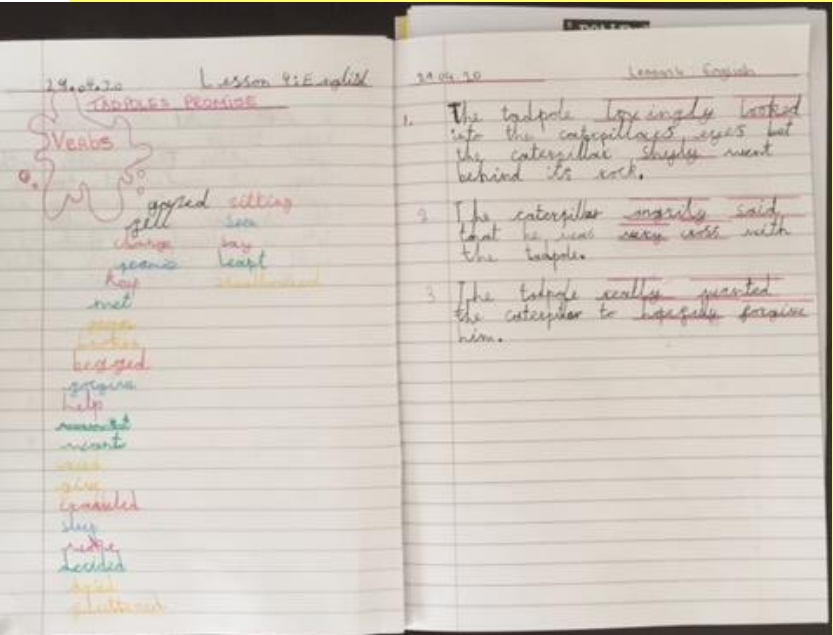 29.04.20 Lesson 4: English
TADPOLES PROMISE
VERBS
gazed sitting
fell saw
change say
promise leapt
keep
met
begged
forgive
help
meant
give
crawled
sleep
decided
fluttered
29.04.20 Lesson 4: English
1. The tadpole lovingly looked
into the caterpillars eyes but
the caterpillar shyly went
behind its rock.
2 The caterpillar angrily said
that he was very cross with
the tadpole.
3 The tadpole really wanted
the caterpillar to forgive
him.